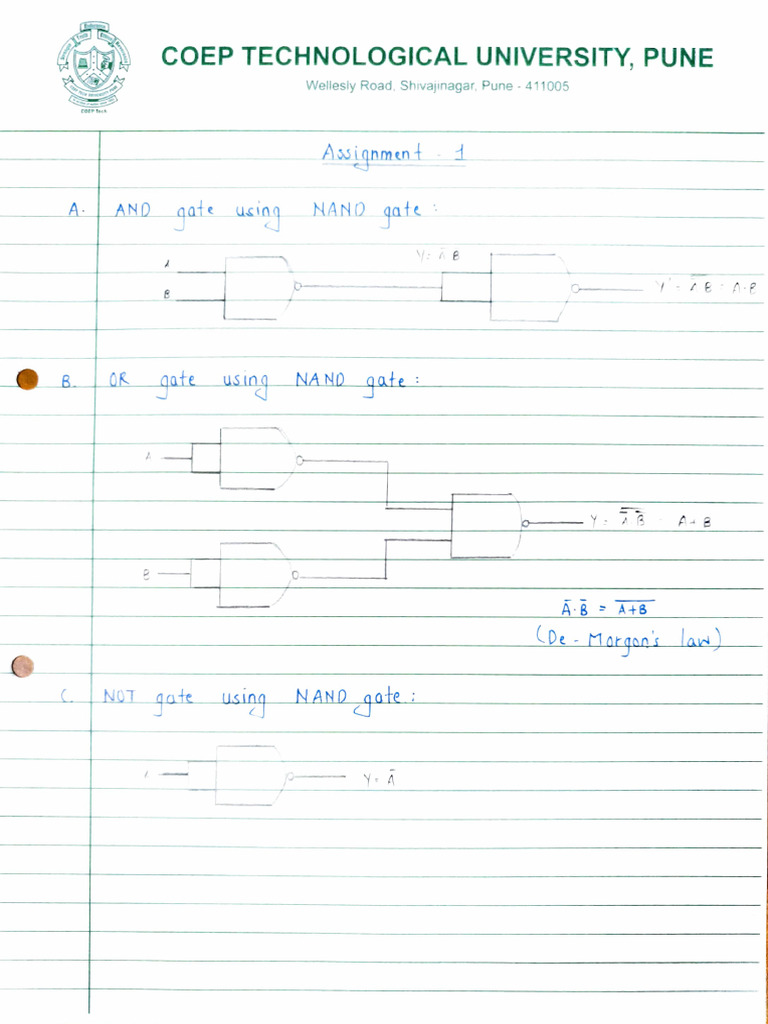 COEP TECHNOLOGICAL UNIVERSITY, PUNE
Wellesly Road, Shivajinagar, Pune - 411005
COEP Tech
Assignment - 1
A. AND gate using NAND gate :
A
B
Y = A̅ B
Y' = A̅ B̅ = A·B
B. OR gate using NAND gate :
A
B
Y = A̿ B̿ = A+B
A̅·B̅ = A̅+̅B̅
(De - Morgon's law)
C. NOT gate using NAND gate :
A
Y = A̅